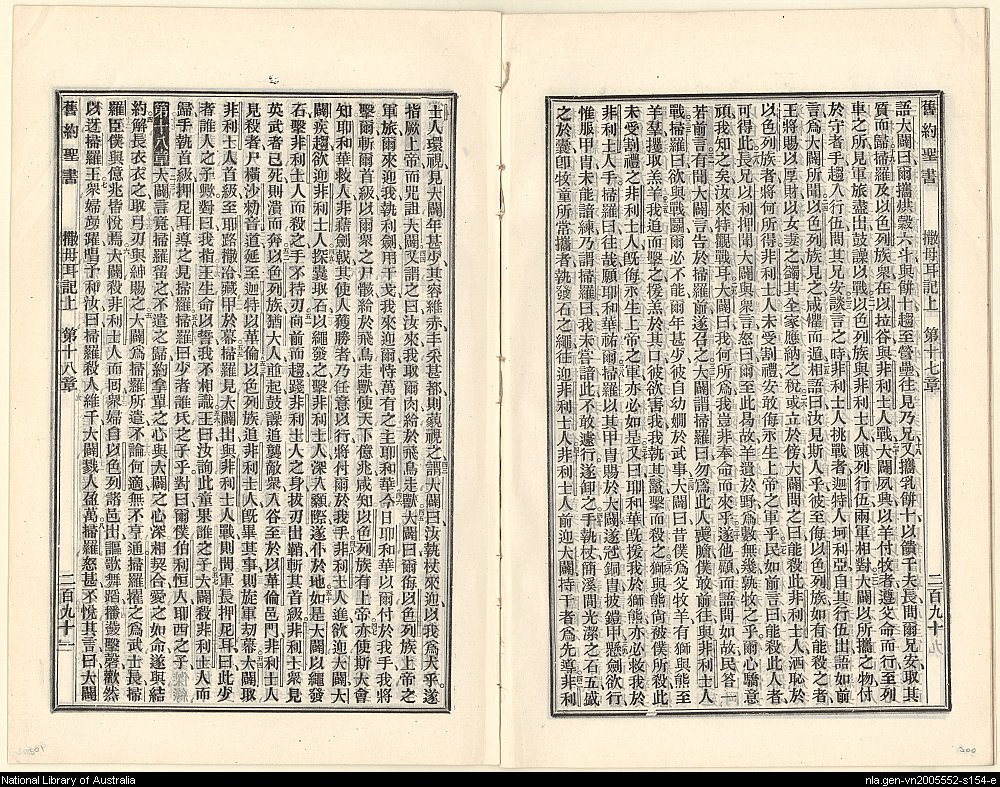 舊約聖書 撒母耳記上 第十七章 二百九十
語大闢曰爾攜烘穀六斗與餅十趨至營壘往見乃兄又攜乳餅十以饋千夫長問爾兄安取其
質而歸掃羅及以色列族衆在以拉谷與非利士人戰大闢夙興以羊付牧者遵父命而行至列
車之所見軍旅盡出鼓譟以戰以色列族與非利士人陳列行伍兩軍相對大闢以所攜之物付
於守者手趨入行伍問其兄安談言之時非利士人挑戰者迦特人坷利亞自其行伍出語如前
言爲大闢所聞以色列族見之咸懼而遁相語曰汝見斯人乎彼至侮以色列族如有能殺之者
王將賜以厚財以女妻之蠲其全家應納之稅或立於傍大闢問之曰能殺此非利士人洒恥於
以色列族者將何所得非利士人未受割禮安敢侮永生上帝之軍乎民如前言曰能殺此人者
可得此長兄以利押聞大闢與衆言怒曰爾至此曷故羊遺於野爲數無幾孰牧之乎爾心驕意
頑我知之矣汝來特觀戰耳大闢曰我何所爲我豈非奉命而來乎遂他顧而語問如故民答一
若前言有聞大闢言告於掃羅前遂召之大闢謂掃羅曰勿爲此人喪膽僕敢前往與非利士人
戰掃羅曰欲與戰鬬爾必不能爾年甚少彼自幼嫻於武事大闢曰昔僕爲父牧羊有獅與熊至
羊羣攫取羔羊我追而擊之援羔於其口彼欲害我我執其鬚擊而殺之獅與熊尚被僕所殺此
未受割禮之非利士人既侮永生上帝之軍亦必如是又曰耶和華既援我於獅熊亦必救我於
非利士人手掃羅曰往哉願耶和華祐爾掃羅以其甲冑賜於大闢遂冠銅冑披鎧甲懸劍欲行
惟服甲冑未能諳練乃謂掃羅曰我未嘗諳此不敢遽行遂卸之手執杖簡溪間光潔之石五盛
之於囊卽牧童所常攜者執發石之繩往迎非利士人非利士人前迎大闢持干者爲先導非利
士人環視見大闢年甚少其容維赤丰采甚都則藐視之謂大闢曰汝執杖來迎以我爲犬乎遂
指厥上帝而咒詛大闢又謂之曰汝來我取爾肉給於飛鳥走獸大闢曰爾侮以色列族上帝之
軍旅爾來迎我執利劍用干戈我來迎爾恃萬有之主耶和華今日耶和華以爾付於我手我將
擊爾斬爾首級以爾衆之尸骸給於飛鳥走獸使天下億兆咸知以色列族有上帝亦使斯大會
知耶和華救人非藉劍戟其使人獲勝者乃任意以行將付爾於我手非利士人進欲迎大闢大
闢疾趨欲迎非利士人探囊取石以繩發之擊非利士人深入顙際遂仆於地如是大闢以繩發
石擊非利士人而殺之手不持刃向前而趨踐非利士人之身拔刃出鞘斬其首級非利士衆見
英武者已死則潰而奔以色列族猶大人前起鼓譟追襲敵衆入谷至於以革倫邑門非利士人
見殺者尸橫沙拗音道延至迦特以革倫以色列族追非利士人既畢其事則旋軍刼幕大闢取
非利士人首級至耶路撒冷藏甲於幕掃羅見大闢出與非利士人戰則問軍長押尼耳曰此少
者誰人之子歟對曰我指王生命以誓我不相識王曰汝詢此童果誰之子大闢殺非利士人而
歸手執首級押尼耳導之見掃羅掃羅曰少者誰氏之子乎對曰爾僕伯利恒人耶西之子
第十八章 大闢言竟掃羅留之不遣之歸約拿單之心與大闢之心深相契合愛之如命遂與結
約解長衣衣之取弓刃與紳賜之大闢爲掃羅所遣不論何適無不亨通掃羅擢之爲武士長掃
羅臣僕與億兆皆悅焉大闢殺非利士人而囘衆婦自以色列諸邑出謳歌舞蹈播鼗擊磬歡然
以迓掃羅王衆婦踴躍唱予和汝曰掃羅殺人維千大闢戮人盈萬掃羅怒甚不悅其言曰大闢
舊約聖書 撒母耳記上 第十八章 二百九十一
National Library of Australia
nla.gen-vn2005552-s154-e